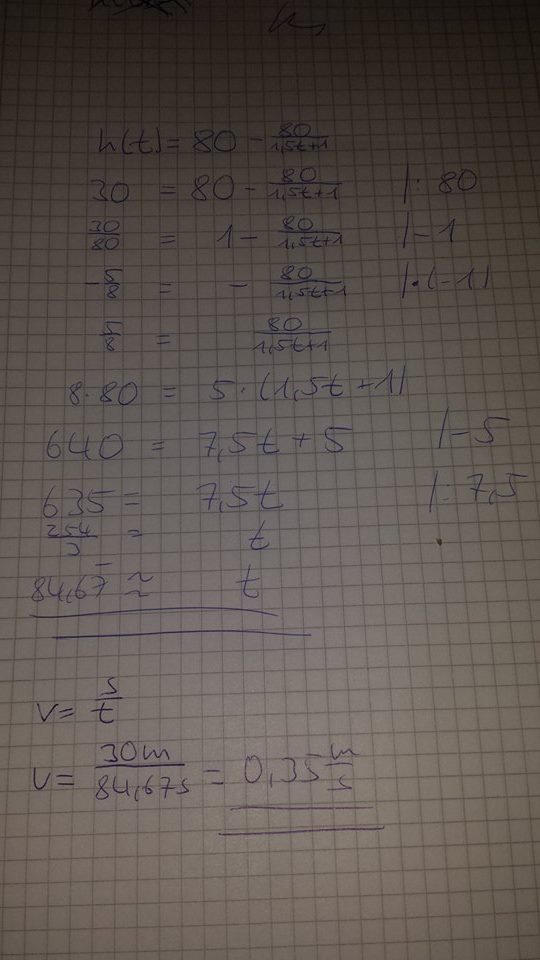 h(t) = 80 - 80/(1,5t+1)
30 = 80 - 80/(1,5t+1) |: 80
30/80 = 1 - 80/(1,5t+1) |- 1
-5/8 = - 80/(1,5t+1) |·(-1)
5/8 = 80/(1,5t+1)
8·80 = 5·(1,5t+1)
640 = 7,5t + 5 |-5
635 = 7,5t |: 7,5
254/3 = t
84,67 ≈ t
v = s/t
v = 30m/84,67s = 0,35 m/s